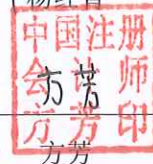 中国注册
会计师
方芳印
方芳
方芳